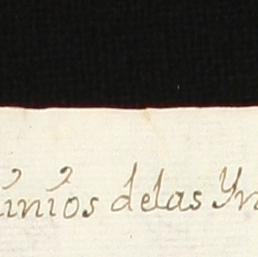 inios delas Yn